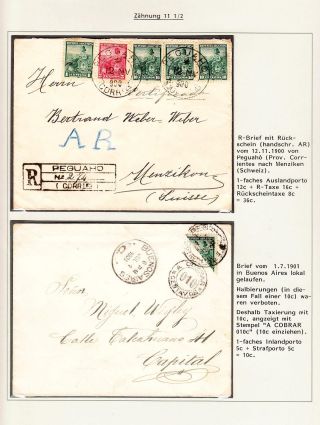 Zähnung 11 1/2
Herren
Bertrand Weber Weber
AR
PEGUAHÓ
R
(CORR)
Menzikon
(Suisse)
R-Brief mit Rück-
schein (handschr. AR)
vom 12.11.1900 von
Peguahó (Prov. Cor-
rientes nach Menziken
(Schweiz).
1-faches Auslandporto
12c + R-Taxe 16c +
Rückscheintaxe 8c
= 36c.
Señor
Calle Talcahuano 41
Capital
Brief vom 1.7.1901
in Buenos Aires lokal
gelaufen.
Halbierungen (in die-
sem Fall einer 10c) wa-
ren verboten.
Deshalb Taxierung mit
10c, angezeigt mit
Stempel "A COBRAR
010c" (10c einziehen).
1-faches Inlandporto
5c + Strafporto 5c
= 10c.